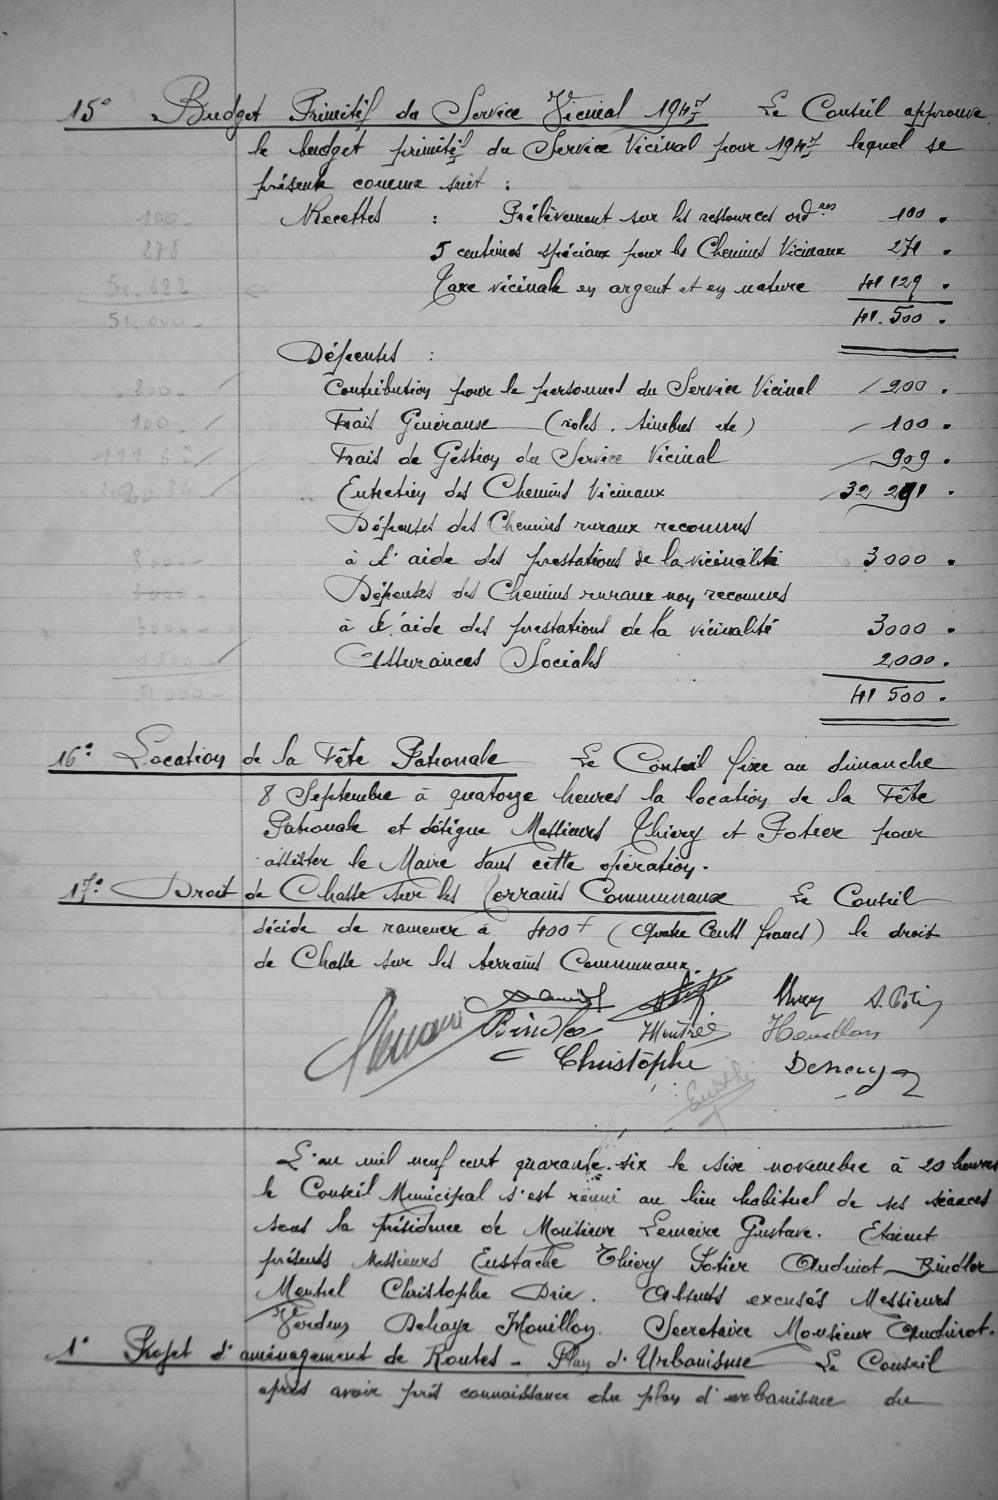 15° Budget Primitif du Service Vicinal 1947 Le Conseil approuve
le budget primitif du Service Vicinal pour 1947 lequel se
présente comme suit :
Recettes : Prélèvement sur les ressources ord.res 100 .
5 centimes spéciaux pour les Chemins Vicinaux 271 .
Taxe vicinale en argent et en nature 41 129 .
41.500 .
Dépenses :
Contribution pour le personnel du Service Vicinal 200 .
Frais Généraux (roles, timbres etc) 100 .
Frais de Gestion du Service Vicinal 909 .
Entretien des Chemins Vicinaux 32 291 .
Dépenses des Chemins ruraux reconnus
à l'aide des prestations de la vicinalité 3000 .
Dépenses des Chemins ruraux non reconnus
à l'aide des prestations de la vicinalité 3000 .
Assurances Sociales 2,000 .
41 500 .
16° Location de la Fête Patronale Le Conseil fixe au dimanche
8 Septembre à quatorze heures la location de la Fête
Patronale et désigne Messieurs Thiery et Potier pour
assister le Maire dans cette opération.
17° Droit de Chasse sur les Terrains Communaux Le Conseil
décide de ramener à 400 f (Quatre Cents francs) le droit
de Chasse sur les terrains Communaux.
Thiery
Houillon
Christophe
L'an mil neuf cent quarante-six le six novembre à 20 heures
le Conseil Municipal s'est réuni au lieu habituel de ses séances
sous la présidence de Monsieur Lemaire Gustave. Etaient
présents Messieurs Eustache Thiery Potier Audinot Bindler
Mentrel Christophe Drie. Absents excusés Messieurs
Dehaye Houillon. Secretaire Monsieur Audinot.
1° Projet d'aménagement de Routes - Plan d'Urbanisme Le Conseil
après avoir pris connaissance du plan d'urbanisme du